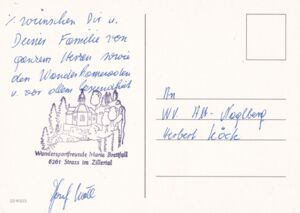 % wünschen Dir u.
Deiner Familie von
ganzem Herzen sowie
den Wanderkameraden
u. vor allem Gesundheit
Wandersportfreunde Maria Brettfall
6261 Strass im Zillertal
Josef
An
WV
Herbert Köck